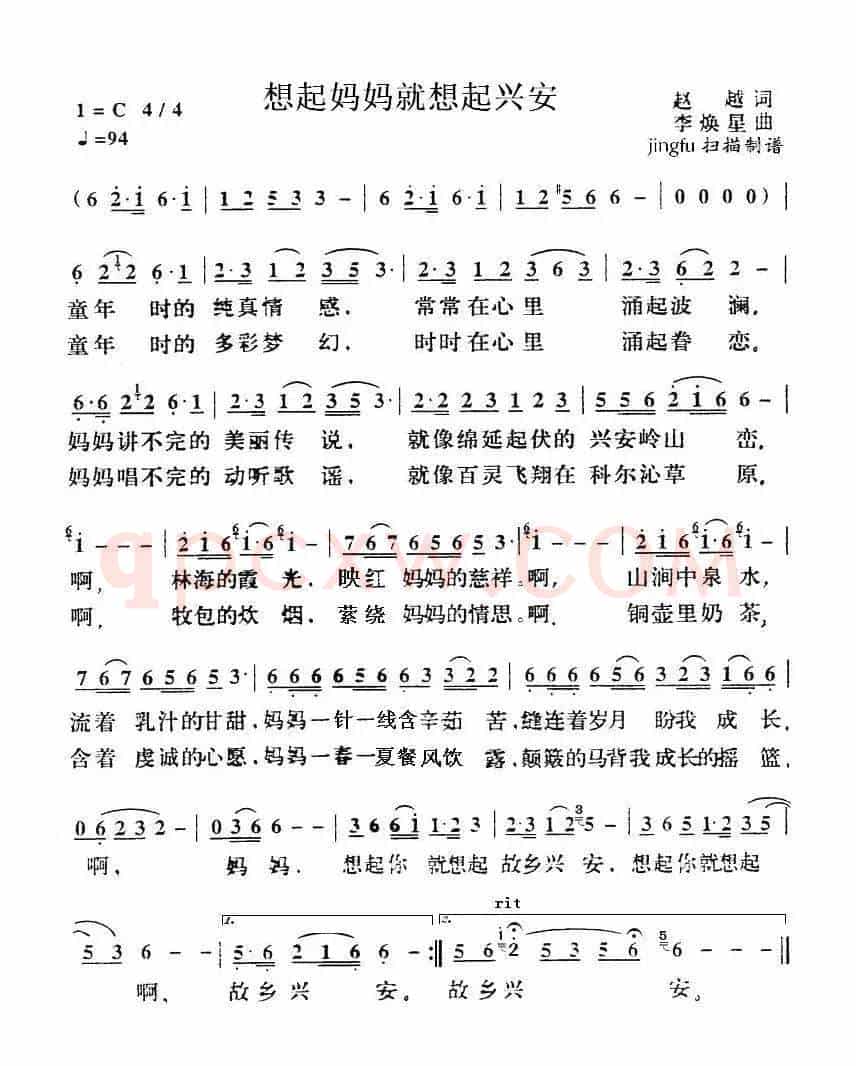 想起妈妈就想起兴安
1=C 4/4
♩=94
赵 越 词
李 焕 星 曲
jingfu 扫描制谱
(6 2·i 6·i | 1 2 5 3 3 - | 6 2·i 6·i | 1 2 #5 6 6 - | 0 0 0 0) |
6 2 1/2 2 6·1 | 2·3 1 2 3 5 3· | 2·3 1 2 3 6 3 | 2·3 6 2 2 - |
童年 时的 纯真情 惑, 常常在心里 涌起波 澜,
童年 时的 多彩梦 幻, 时时在心里 涌起眷 恋。
6·6 2 1/2 2 6·1 | 2·3 1 2 3 5 3· | 2·2 2 3 1 2 3 | 5 5 6 2 i 6 6 - |
妈妈讲不完的 美丽传 说, 就像绵延起伏的 兴安岭山 峦。
妈妈唱不完的 动听歌 谣, 就像百灵飞翔在 科尔沁草 原。
6 i - - - | 2 i 6 6 i·6 6 i - | 7 6 7 6 5 6 5 3· | 6 i - - - | 2 i 6 6 i·6 6 i - |
啊, 林海的霞 光, 映红 妈妈的慈祥。啊, 山涧中泉 水,
啊, 牧包的炊 烟, 萦绕 妈妈的情思。啊, 铜壶里奶 茶,
7 6 7 6 5 6 5 3· | 6 6 6 6 5 6 6 3 3 2 2 | 6 6 6 6 5 6 3 2 3 1 6 6 |
流着 乳汁的甘甜,妈妈一针一线含辛茹 苦,缝连着岁月 盼我 成 长,
含着 虔诚的心愿,妈妈一春一夏餐风饮 露,颠簸的马背我成长的摇 篮,
0 6 2 3 2 - | 0 3 6 6 - - | 3 6 6 i 1·2 3 | 2·3 1 2 3 5 - | 3 6 5 6 1·2 3 5 |
啊, 妈 妈, 想起你 就想起 故乡兴 安,想起你就想起
rit
1. 2.
5 3 6 - - | 5·6 2 1 6 6 - :‖ 5 6 i 2 5 3 5 6 | 5 6 - - - ‖
啊, 故乡兴 安。故乡兴 安。
qpcxw.COM